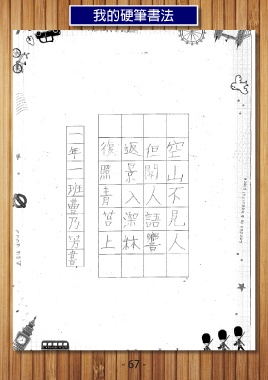 我的硬筆書法
空山不見人
但聞人語響
返景入深林
復照青苔上
一年一班
- 67 -